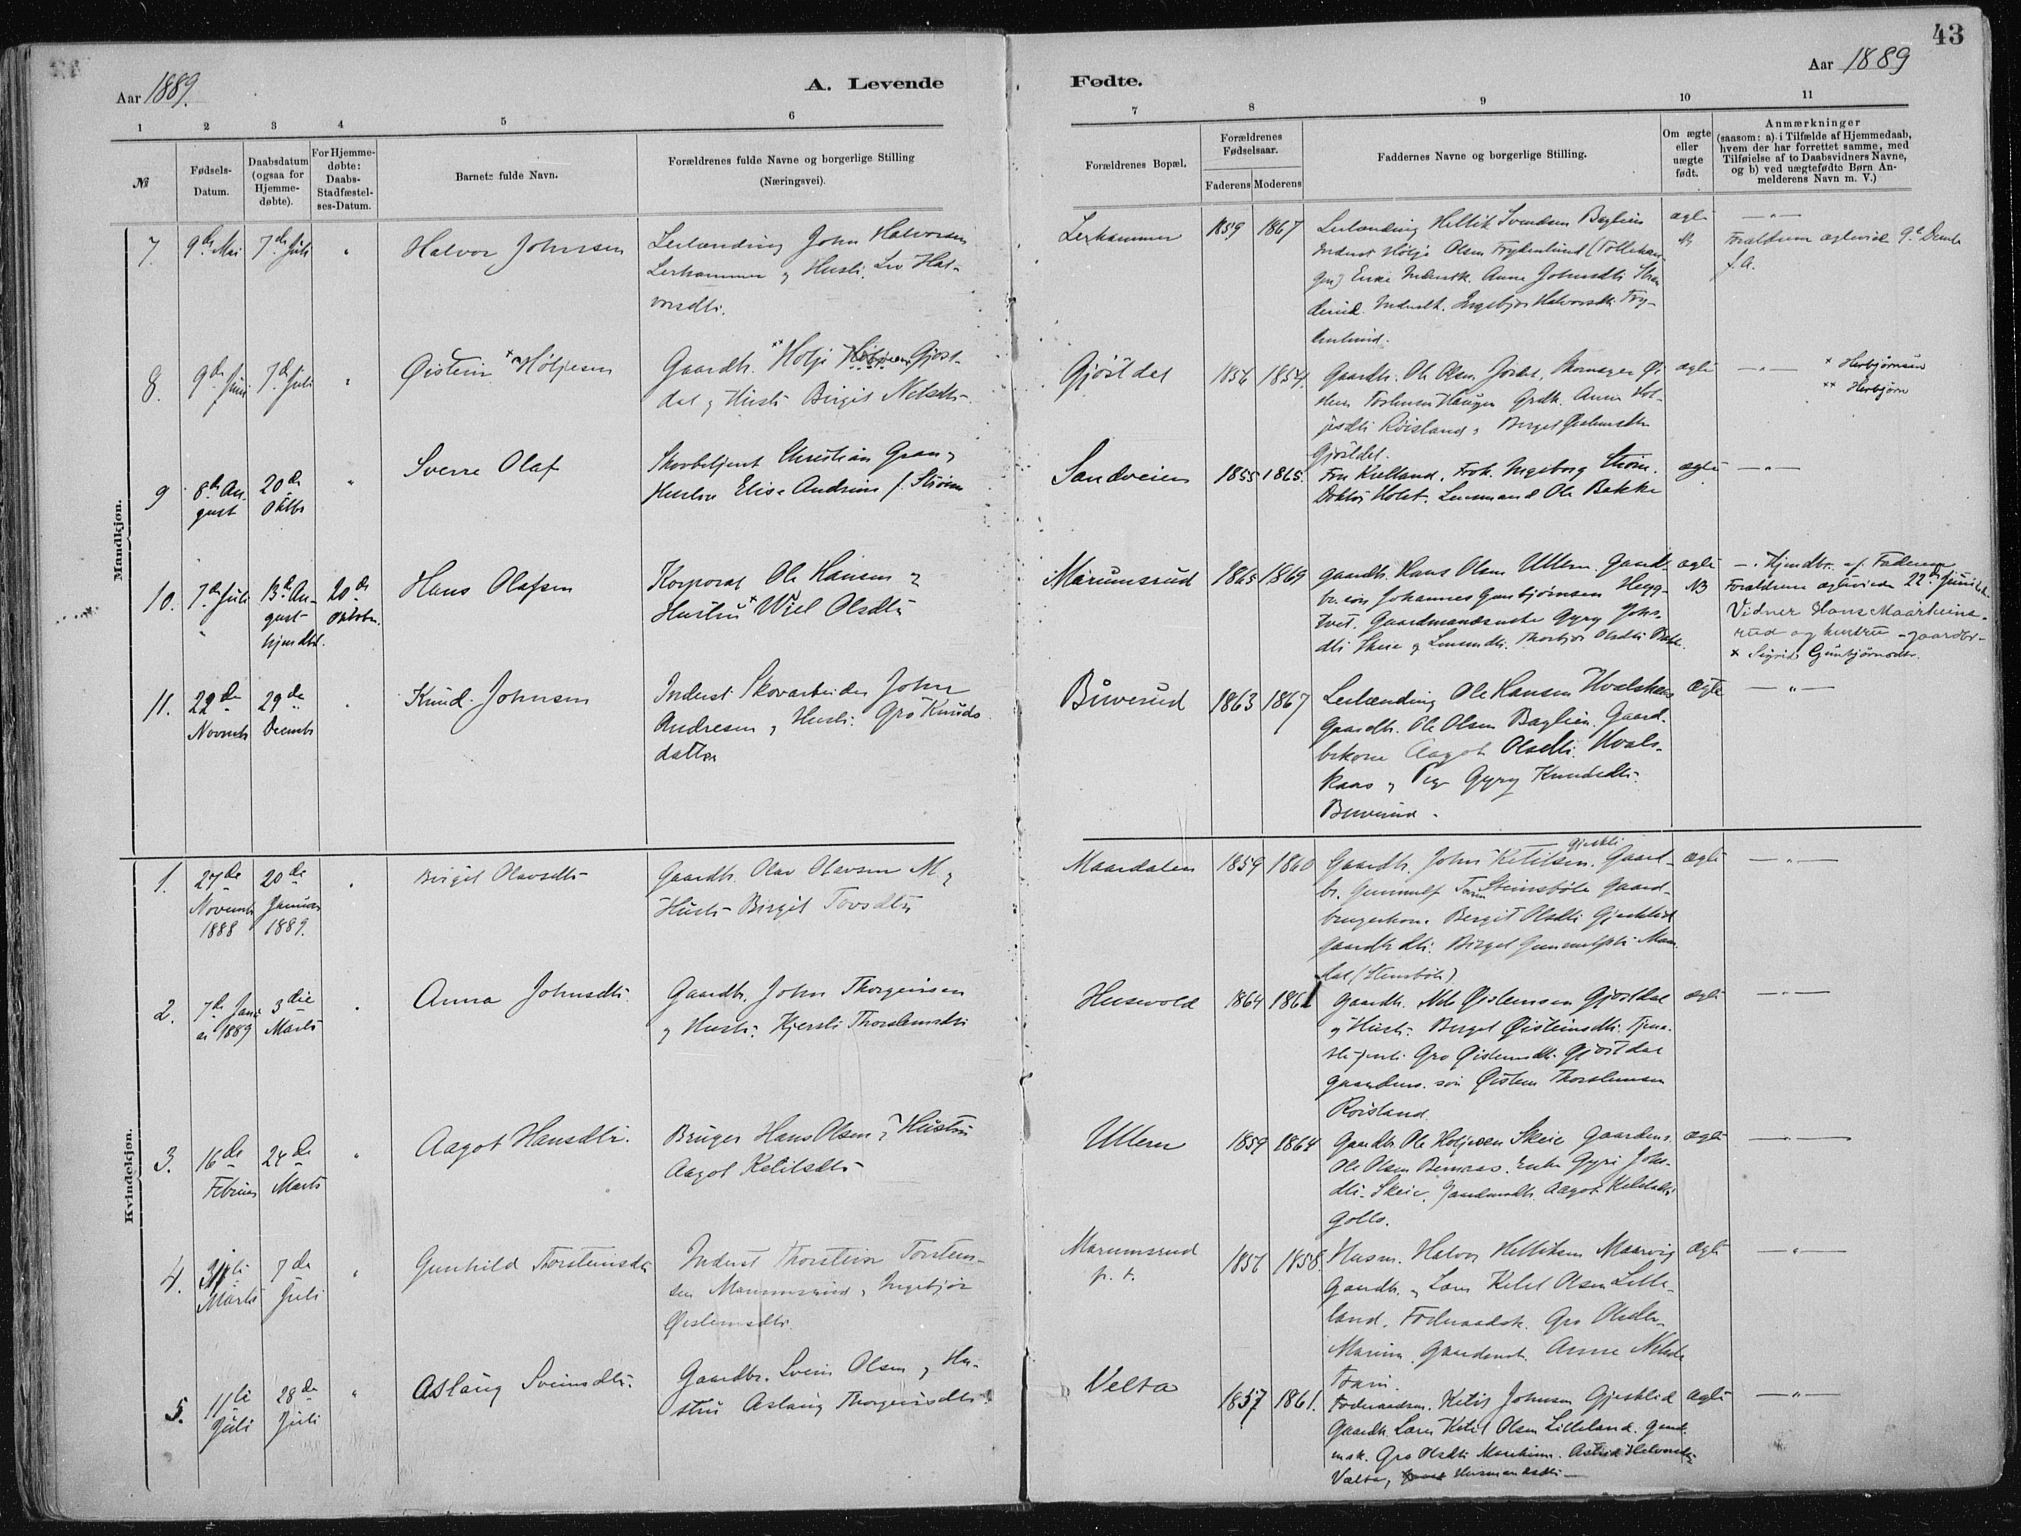 43
Aar 1889.
A. Levende
Fødte.
Aar 1889
1 2 3 4 5 6 7 8 9 10 11
№
Fødsels-
Datum.
Daabsdatum
(ogsaa for
Hjemme-
døbte).
For Hjemme-
døbte:
Daabs-
Stadfæstel-
ses-Datum.
Barnets fulde Navn.
Forældrenes fulde Navne og borgerlige Stilling
(Næringsvei).
Forældrenes Bopæl.
Forældrenes
Fødselsaar.
Faderens Moderens
Faddernes Navne og borgerlige Stilling.
Om ægte
eller
uægte
født.
Anmærkninger
(saasom: a). i Tilfælde af Hjemmedaab,
hvem der har forrettet samme, med
Tilføielse af to Daabsvidners Navne,
og b) ved uægtefødte Børn An-
melderens Navn m. V.)
Mandkjøn.
7.
9de Mai
7de Juli
"
Halvor Johnsen
Leilænding John Halvorsen
Lerhammer og Hustr. Liv Hal-
vorsdtr.
Lerhammer
1859 1867
Leilænding Hellik Svendsen Baglien
Inderst Høljе Olsen Frydenlund
Anne Johnsdtr.
Inderst. Ingebjør Halvorsdtr. Fry-
denlund.
ægte
NB
— " —
Forældrene ægteviede 9de Decmbr
f. A.
8.
9de Juni
7de Juli
"
Øistein Høljesen
Gaardbr. Holje Gjøst-
dal og Hustr. Birgit Nilsdtr.
Gjøstdal
1856 1854.
Gaardbr. Ole Olsen
Anne Høl-
jesdtr. Røisland, Birgit Øisteinsdtr.
Gjøstdal.
ægte
— " —
× Herbjørnsen
×× Herbjørn
9
8de Au-
gust
20de
Oktbr
"
Sverre Olaf
Skovbetjent Christian Gran og
Hustru Elise Andrine f. Strøm
Sandveien
1855 1865.
Fru Kielland. Frøk. Ingeborg Strøm.
Doktor Holst. Lensmand Ole Bakke
ægte
— " —
10.
7de Juli
13de Au-
gust
hjmdbt.
20de
Oktober.
Hans Olafsen
Korporal Ole Hansen og
Hustru × Wiel Olsdtr
Marumsrud
1865 1869
Gaardbr. Hans Olsen Ullern. Gaard-
br. søn Johannes Gunbjørnsen Hegg-
tveit. Gaardmandsenke Gyry Johs-
dtr. Skeie og Lensmdtr. Thorbjør Olsdtr. Bakke.
ægte
NB
— . Hjmdbt. af Faderen
Forældrene ægteviede 22de Juni
Vidner Hans Maarheims-
rud og hustru - gaardbr -
× Sigrid Gunbjørnsdtr.
11.
22de
Novmbr
29de
Decembr
"
Knud Johnsen
Inderst Skovarbeider John
Andresen og Hustr. Gro Knuds-
datter
Buverud
1863 1867
Leilænding Ole Hansen Hvalskaas
Gaardbr. Ole Olsen Baglien. Gaard-
brkone Aagot Olsdtr. Hvals-
kaas og Pige Gyry Knudsdtr.
Buverud.
ægte
— " —
Kvindekjøn.
1.
27de
Novembr
1888
20de
Januar
1889.
"
Birgit Olavsdtr
Gaardbr. Olav Olavsen M. og
Hustr. Birgit Tovsdtr
Maardalen
1859 1860
Gjesklid
Gaardbr. John Ketilsen. Gaard-
br. Gunnulf Steinsbøle Gaard-
brugerkone Bergit Olsdtr. Gjesklid
Gaardbrdtr. Birgit Gunnulfsdtr. Maar-
dal (Stensbøle)
ægte
— " —
2.
7de Janu-
ar 1889
3die
Marts
"
Anna Johnsdtr.
Gaardbr. John Thorgeirsen
og Hustr. Kjersti Thorsteinsdtr
Husevold
1864 1862
Gaardbr. Nils Øisteinsen Gjøstdal
og Hustr. Birgit Øisteinsdtr. Tjene-
stepige Gro Øisteinsdtr. Gjøstdal
Gaardens. søn Øistein Thorsteinsen
Røisland
ægte
— " —
3.
16de
Februar
24de
Marts
"
Aagot Hansdtr.
Bruger Hans Olsen og Hustru
Aagot Ketilsdtr
Ullern
1859 1864
Gaardbr. Ole Holjesen Skeie Gaardens.
Ole Olsen. Enke Gyri Johs-
dtr. Skeie, Gaardmdtr. Aagot
Golls.
ægte
— " —
4.
Marts
7de
Juli
"
Gunhild Thorsteinsdtr
Inderst Thorstein Torstein-
sen Marumsrud og Ingebjør
Øisteinsdtr.
Marumsrud
p. t.
1856 1858.
Husm. Halvor Helliksen Maarvig
Gaardbr. Lars Ketil Olsen Lille-
land. Føderaadsk. Gro Olsdtr.
Anne Nilsdtr
Traen.
ægte
— " —
5.
11te
Juli
28de
Juli
"
Aslaug Sveinsdtr.
Gaardbr. Svein Olsen og Hu-
stru Aslaug Thorgeirsdtr.
Velta
1857 1861.
Føderaadsm. Ketil Johnsen Gjesklid
Gaardbr. Lars Ketil Olsen Lilleland. Gaard-
msk. Gro Olsdtr. Marheim. Astrid Halvorsdtr.
Vælta, Husmandsdtr.
ægte
— " —